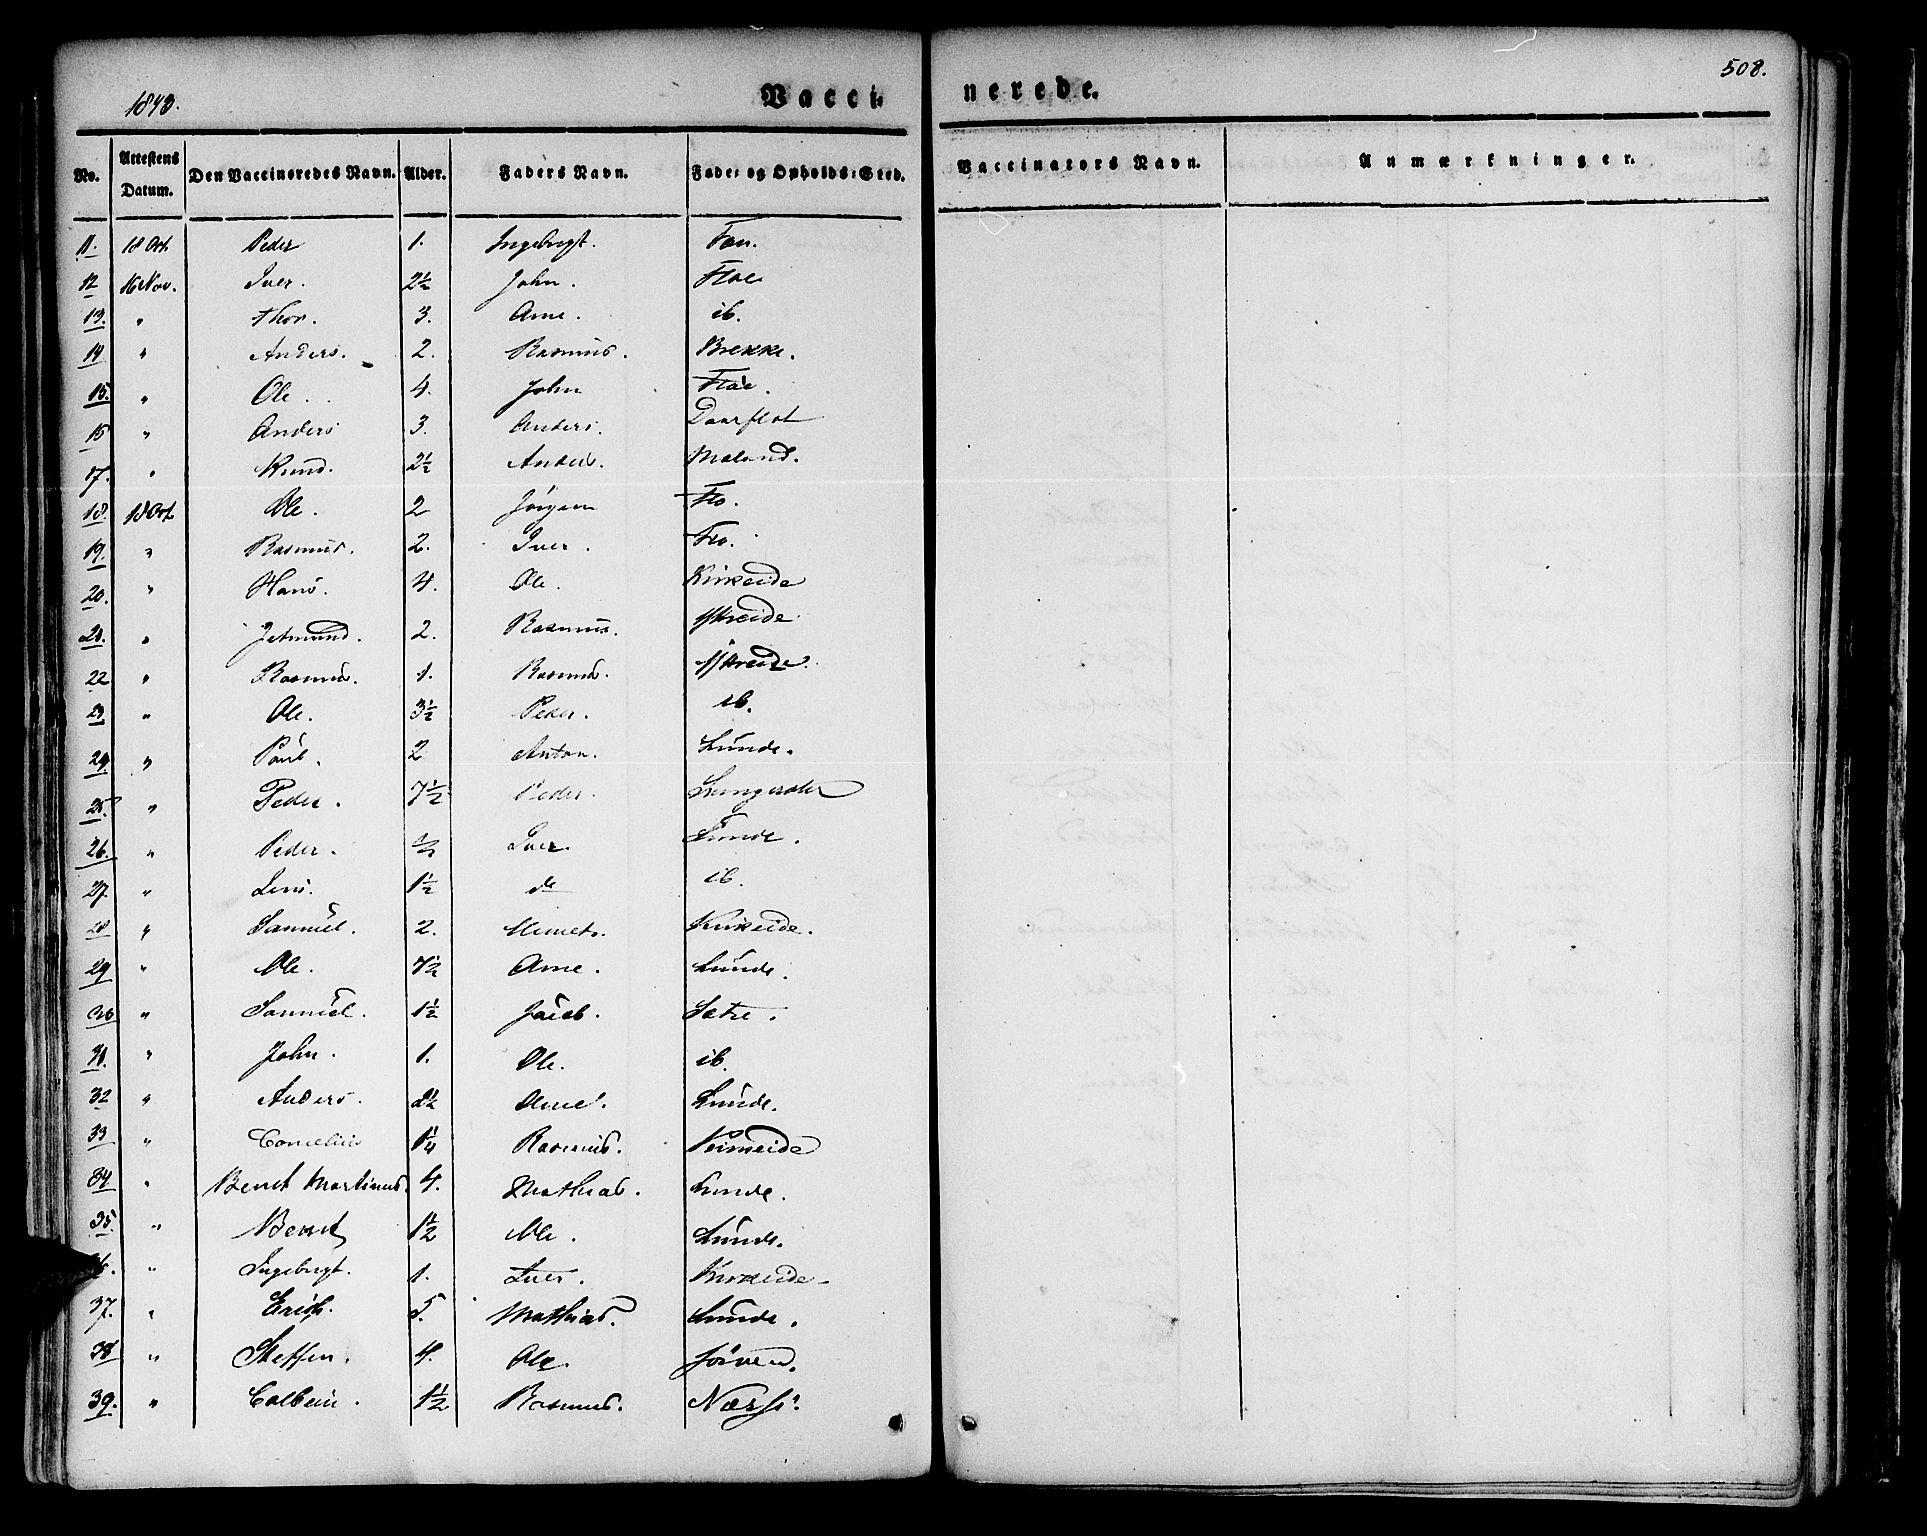 1843.
Vacci=
nerede.
508.
No. Attestens Datum. Den Vaccineredes Navn. Alder. Faders Navn. Føde= og Opholds=Sted.
Vaccinators Navn. Anmærkninger.
11. 18 Oct. Peder 1. Ingebrigt.
12 16 Nov. Iver. 2½ John. Floe
13. " Thor. 3. Arne. ib.
14 " Anders. 2. Rasmus. Brekke.
15. " Ole. 4. John Floe.
15 " Anders 3. Anders. Daarflot
17. " Knud. 2½ Anders. Moland.
18. 18 Oct. Ole. 2 Jörgen Flo.
19. " Rasmus. 2. Iver. Flo.
20. " Hans. 4. Ole. Kirkeide
21. " Jetmund. 2. Rasmus.
22 " Rasmus. 1. Rasmus.
23 " Ole. 3½ Peder. ib.
24. " Paul. 2 Anton. Lunde.
25. " Peder. 7½ Peder.
26. " Peder. ½ Iver. Lunde.
27. " Jens. 1½ do ib.
28 " Samuel. 2. Kirkeide.
29 " Ole. 7½ Arne. Lunde.
30 " Samuel. 1½ Jacob. Sætre.
31. " John. 1. Ole. ib.
32 " Anders. 2½ Arne. Lunde.
33 " Cornelius 1¼ Rasmus.
34 " Bendt Martinus. 4. Mathias. Lunde.
35. " Bendt 1½ Ole. Lunde.
36. " Ingebrigt. 1. Iver. Kirkeide
37. " Erich. 5. Mathias. Lunde.
38 " Steffen. 4. Ole.
39. " Colbein. 1½ Rasmus.